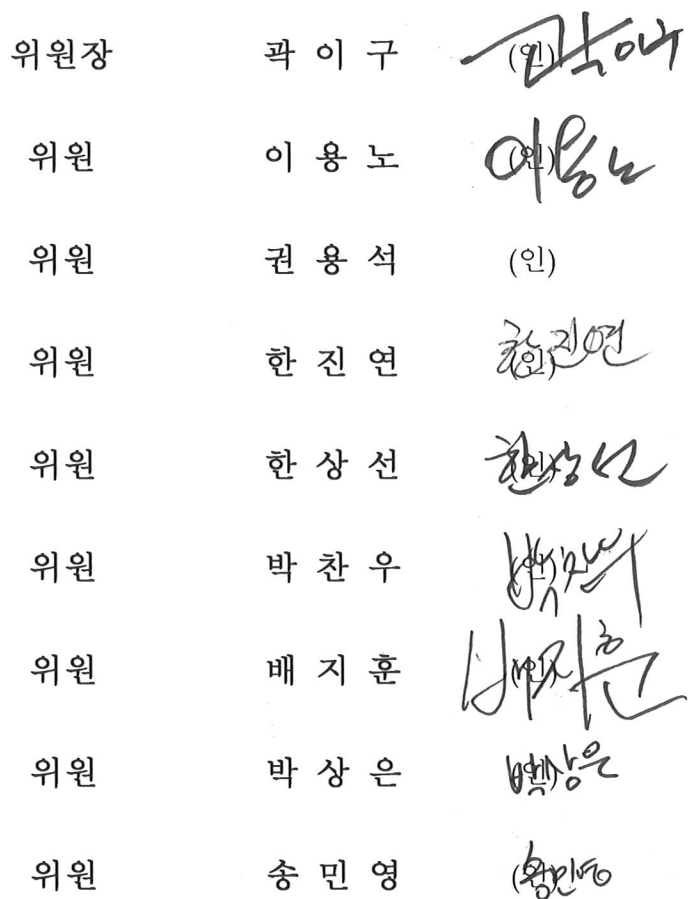 위원장 곽 이 구 (인) 곽이구
위원 이 용 노 (인) 이용노
위원 권 용 석 (인)
위원 한 진 연 (인) 한진연
위원 한 상 선 (인) 한상선
위원 박 찬 우 (인) 박찬우
위원 배 지 훈 (인) 배지훈
위원 박 상 은 (인) 박상은
위원 송 민 영 (인) 송민영